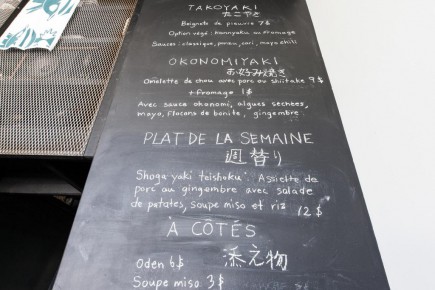 TAKOYAKI
たこやき
Beignets de pieuvre 7$
Option végé: Konnyaku ou fromage
Sauces: classique, ponzu, cari, mayo chili
OKONOMIYAKI
お好み焼き
Omelette de chou avec porc ou shiitake 9$
+ Fromage 1$
Avec sauce okonomi, algues séchées,
mayo, flocons de bonite, gingembre.
PLAT DE LA SEMAINE
週替り
Shoga yaki teishoku: Assiette de
porc au gingembre avec salade
de patates, soupe miso et riz 12$
À CÔTÉS
添え物
Oden 6$
Soupe miso 3$